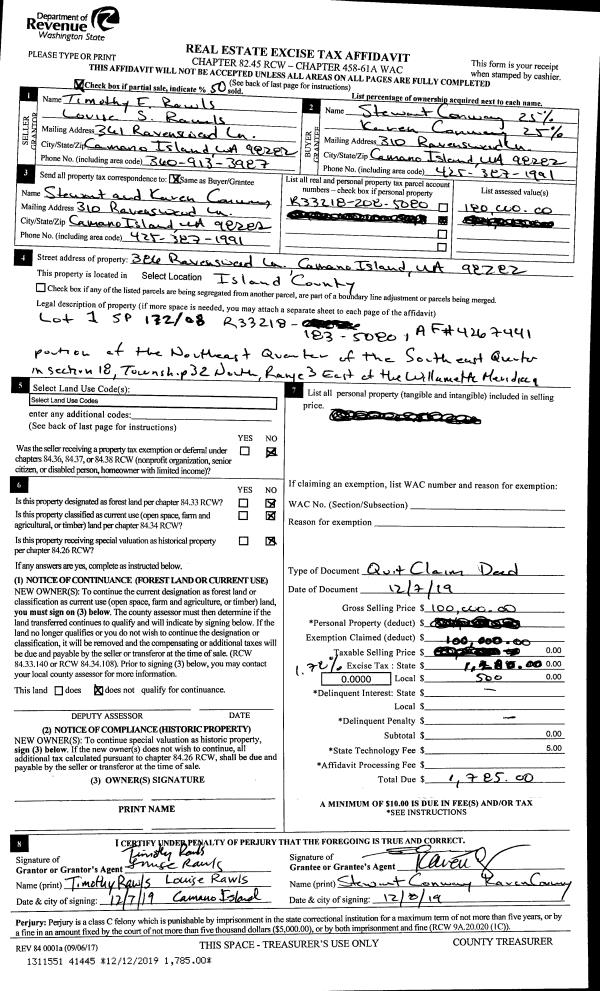 Department of
Revenue
Washington State
REAL ESTATE EXCISE TAX AFFIDAVIT
PLEASE TYPE OR PRINT
CHAPTER 82.45 RCW – CHAPTER 458-61A WAC
This form is your receipt
when stamped by cashier.
THIS AFFIDAVIT WILL NOT BE ACCEPTED UNLESS ALL AREAS ON ALL PAGES ARE FULLY COMPLETED
(See back of last page for instructions)
Check box if partial sale, indicate % 50 sold.
List percentage of ownership acquired next to each name.
1
SELLER GRANTOR
Name Timothy E. Rawls
Louise S. Rawls
Mailing Address 361 Ravenswood Ln.
City/State/Zip Camano Island, WA 98282
Phone No. (including area code) 360-913-3987
2
BUYER GRANTEE
Name Stewart Conway 25%
Karen Conway 25%
Mailing Address 310 Ravenswood Ln.
City/State/Zip Camano Island, WA 98282
Phone No. (including area code) 425-387-1991
3
Send all property tax correspondence to: Same as Buyer/Grantee
Name Stewart and Karen Conway
Mailing Address 310 Ravenswood Ln.
City/State/Zip Camano Island, WA 98282
Phone No. (including area code) 425-387-1991
List all real and personal property tax parcel account
numbers – check box if personal property
R33218-208-5080
List assessed value(s)
180,000.00
4
Street address of property: 386 Ravenswood Ln, Camano Island, WA 98282
This property is located in Select Location Island County
Check box if any of the listed parcels are being segregated from another parcel, are part of a boundary line adjustment or parcels being merged.
Legal description of property (if more space is needed, you may attach a separate sheet to each page of the affidavit)
Lot 1 SP 172/08 R33218-
183-5080, AF#4267441
portion of the Northeast Quarter of the Southeast Quarter
in section 18, Township 32 North, Range 3 East of the Willamette Meridian
5
Select Land Use Code(s):
Select Land Use Codes
enter any additional codes:
(See back of last page for instructions)
YES NO
Was the seller receiving a property tax exemption or deferral under
chapters 84.36, 84.37, or 84.38 RCW (nonprofit organization, senior
citizen, or disabled person, homeowner with limited income)?
6
YES NO
Is this property designated as forest land per chapter 84.33 RCW?
Is this property classified as current use (open space, farm and
agricultural, or timber) land per chapter 84.34 RCW?
Is this property receiving special valuation as historical property
per chapter 84.26 RCW?
If any answers are yes, complete as instructed below.
(1) NOTICE OF CONTINUANCE (FOREST LAND OR CURRENT USE)
NEW OWNER(S): To continue the current designation as forest land or
classification as current use (open space, farm and agriculture, or timber) land,
you must sign on (3) below. The county assessor must then determine if the
land transferred continues to qualify and will indicate by signing below. If the
land no longer qualifies or you do not wish to continue the designation or
classification, it will be removed and the compensating or additional taxes will
be due and payable by the seller or transferor at the time of sale. (RCW
84.33.140 or RCW 84.34.108). Prior to signing (3) below, you may contact
your local county assessor for more information.
This land does does not qualify for continuance.
DEPUTY ASSESSOR DATE
(2) NOTICE OF COMPLIANCE (HISTORIC PROPERTY)
NEW OWNER(S): To continue special valuation as historic property,
sign (3) below. If the new owner(s) does not wish to continue, all
additional tax calculated pursuant to chapter 84.26 RCW, shall be due and
payable by the seller or transferor at the time of sale.
(3) OWNER(S) SIGNATURE
PRINT NAME
7
List all personal property (tangible and intangible) included in selling
price.
If claiming an exemption, list WAC number and reason for exemption:
WAC No. (Section/Subsection)
Reason for exemption
Type of Document Quit Claim Deed
Date of Document 12/7/19
Gross Selling Price $ 100,000.00
*Personal Property (deduct) $
Exemption Claimed (deduct) $ 100,000.00
Taxable Selling Price $ 0.00
1.78% Excise Tax : State $ 1,280.00 0.00
0.0000 Local $ 500 0.00
*Delinquent Interest: State $ –
Local $
*Delinquent Penalty $ –
Subtotal $ 0.00
*State Technology Fee $ 5.00
*Affidavit Processing Fee $
Total Due $ 1,785.00
A MINIMUM OF $10.00 IS DUE IN FEE(S) AND/OR TAX
*SEE INSTRUCTIONS
8
I CERTIFY UNDER PENALTY OF PERJURY THAT THE FOREGOING IS TRUE AND CORRECT.
Signature of
Grantor or Grantor's Agent Timothy Rawls
Louise Rawls
Name (print) Timothy Rawls Louise Rawls
Date & city of signing: 12/7/19 Camano Island
Signature of
Grantee or Grantee's Agent
Name (print) Stewart Conway Karen Conway
Date & city of signing: 12/8/19
Perjury: Perjury is a class C felony which is punishable by imprisonment in the state correctional institution for a maximum term of not more than five years, or by
a fine in an amount fixed by the court of not more than five thousand dollars ($5,000.00), or by both imprisonment and fine (RCW 9A.20.020 (1C)).
REV 84 0001a (09/06/17)
THIS SPACE - TREASURER'S USE ONLY
COUNTY TREASURER
1311551 41445 *12/12/2019 1,785.00*